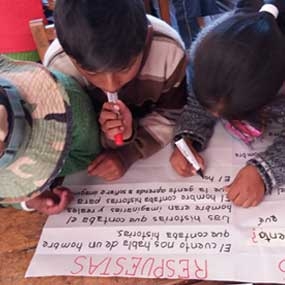 RESPUESTAS
El cuento nos habla de un hombre
que contaba historias.
Las historias que contaba el
hombre eran imaginarias y reales
El hombre contaba historias para
que la gente aprenda a soñar e
El
que